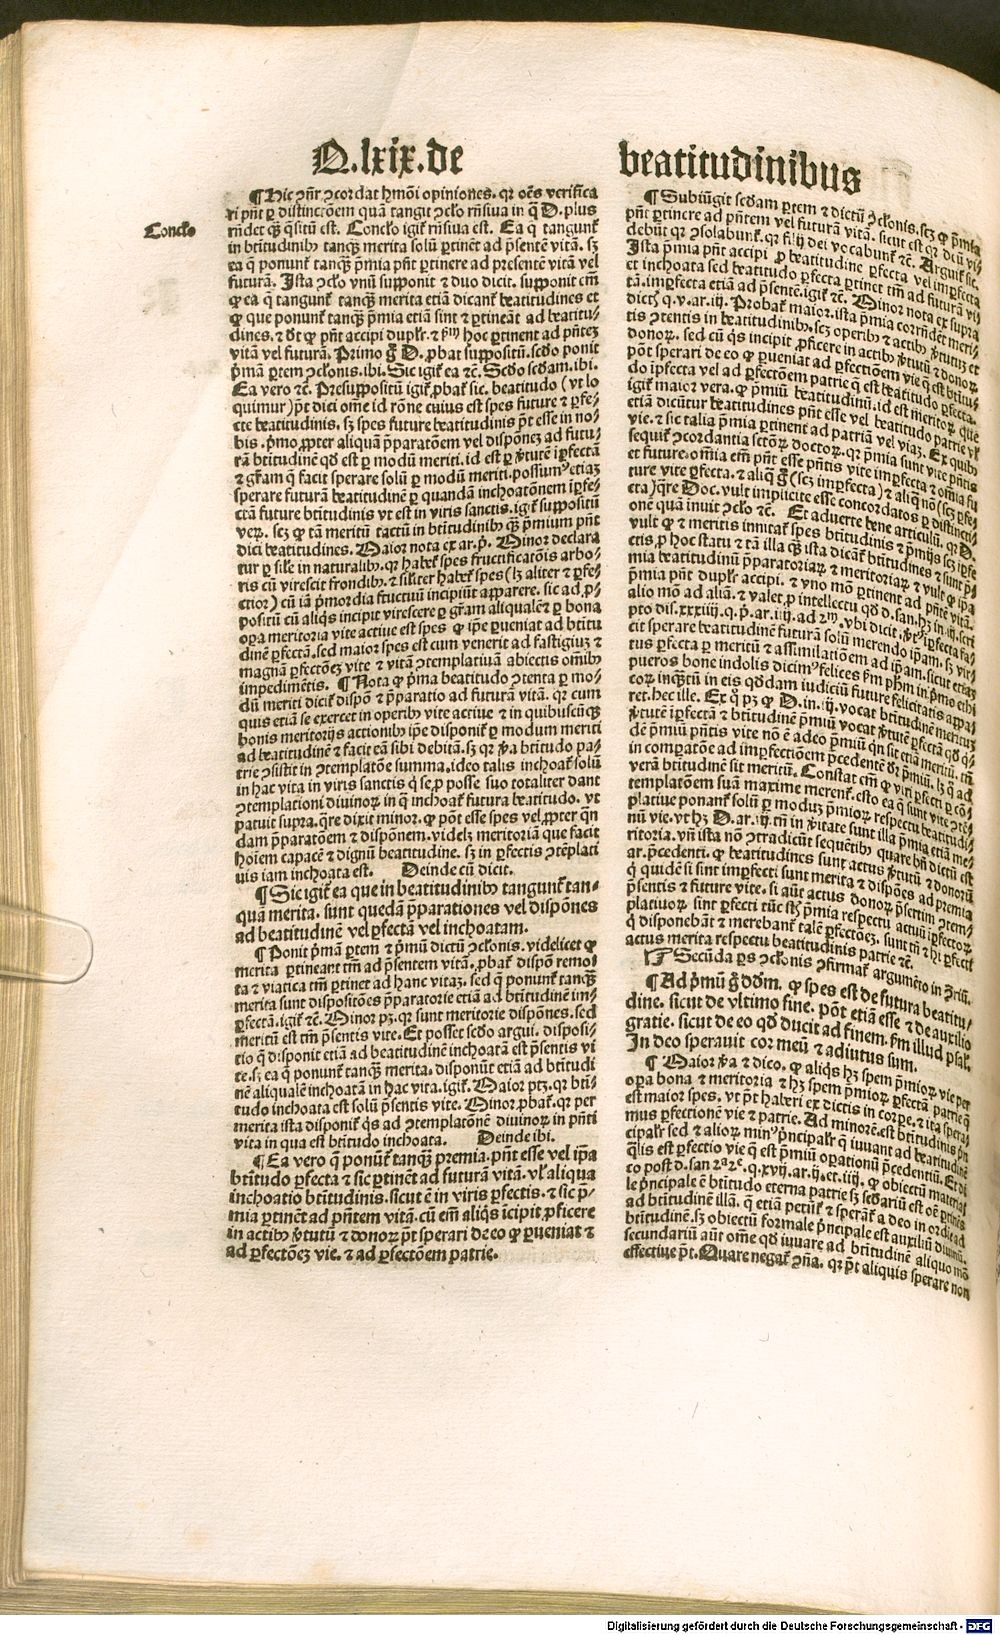 Q. lxix. de
beatitudinibus
Conclo
¶ Hic ꝯñr ꝯcordat hmõi opiniones. qr oẽs verifica
ri pñt ꝑ distinctõem quã tangit ꝯclo rñsiua in q̃ D. plus
rñdet qꝫ q̃situ est. Conclo igiť rñsiua est. Ea q̃ tangunť
in btitudinibꝫ tanqꝫ merita solũ ꝑtinẽt ad p̃sentẽ vitã. sꝫ
ea q̃ ponunť tanqꝫ p̃mia pñt ꝑtinere ad presentẽ vitã vel
futurã. Ista ꝯclo vnũ supponit ⁊ duo dicit. supponit em̃
ꝙ ea q̃ tangunť tanqꝫ merita etiã dicanť beatitudines et
ꝙ que ponunť tanqꝫ p̃mia etiã sint ⁊ ꝑtineãt ad beatitu-
dines. ⁊ dr̃ ꝙ pñt accipi duplr. ⁊ ẜm hoc ꝑtinent ad pñteꝫ
vitã vel futurã. Primo g̃ D. ꝓbat suppositũ. sẽdo ponit
p̃mã ꝑtem ꝯclonis. ibi. Sic igiť ea ⁊c̃. Scẽdo sẽdam. ibi.
Ea vero ⁊c̃. Presuppositũ igiť ꝓbať sic. beatitudo (vt lo
quimur) p̃t dici om̃e id rõne cuius est spes future ⁊ ꝑfe-
cte beatitudinis. sꝫ spes future beatitudinis p̃t esse in no-
bis. p̃mo ꝓpter aliquã p̃paratõem vel disponeꝫ ad futu-
rã btitudinẽ qd̃ est ꝑ modũ meriti. id est ꝑ ꝟtutẽ iꝑfectã
⁊ gr̃am q̃ facit sperare solũ ꝑ modũ meriti. possumꝰ etiaꝫ
sperare futurã beatitudinẽ ꝑ quandã inchoatõnem iꝑfe-
ctã future btitudinis vt est in viris sanctis. igiť suppositũ
veꝝ. scꝫ ꝙ tã meritũ tactũ in btitudinibꝫ qꝫ p̃mium pñt
dici beatitudines. Maior nota ex ar. p̃. Minor declara
tur ꝑ sil̃e in naturalibꝫ. qr haber̃ spes fructificatõis arbo-
ris cũ virescit frondibꝫ. ⁊ sil̃iter haber̃ spes (lꝫ aliter ⁊ ꝑfe-
ctior) cũ iã p̃mordia fructuũ incipiũt apparere. sic ad ꝓ-
positũ cũ aliq̃s incipit virescere ꝑ gr̃am aliqualẽ ⁊ ꝑ bona
oꝑa meritoria vite actiue est spes ꝙ ip̃e ꝑueniat ad btitu
dinẽ ꝑfectã. sed maior spes est cum venerit ad fastigiuꝫ ⁊
magnã ꝑfectõeꝫ vite ⁊ vitã ꝯtemplatiuã abiectis om̃ibꝫ
impedimẽtis. ¶ Nota ꝙ p̃ma beatitudo ꝯtenta ꝑ mo-
dũ meriti diciť dispõ ⁊ p̃paratio ad futurã vitã. qr cum
quis etiã se exercet in operibꝫ vite actiue ⁊ in quibuscũqꝫ
bonis meritorijs actionibꝫ ip̃e disponiť ꝑ modum meriti
ad beatitudinẽ ⁊ facit eã sibi debitã. sꝫ qr ꝟa btitudo pa-
trie ꝯsistit in ꝯtemplatõe summa. ideo talis inchoať solũ
in hac vita in viris sanctis q̃ se ꝓ posse suo totaliter dant
ꝯtemplationi diuinoꝝ in q̃ inchoať futura beatitudo. vt
patuit supra. q̃re dixit minor. ꝙ põt esse spes vel ꝓpter qn
dam p̃paratõem ⁊ dispõnem. videlꝫ meritoriã que facit
hoĩem capacẽ ⁊ dignũ beatitudine. sꝫ in ꝑfectis ꝯtẽplati
uis iam inchoata est. Deinde cũ dicit.
¶ Sic igiť ea que in beatitudinibꝫ tangunť tan-
quã merita. sunt quedã p̃parationes vel dispõnes
ad beatitudinẽ vel ꝑfectã vel inchoatam.
¶ Ponit p̃mã ꝑtem ⁊ p̃miũ dictũ ꝯclonis. videlicet ꝙ
merita ꝑtineant tm̃ ad p̃sentem vitã. ꝓbať dispõ remo-
ta ⁊ viatica tm̃ ꝑtinet ad hanc vitaꝫ. sed q̃ ponunť tanqꝫ
merita sunt dispositões p̃paratorie etiã ad btitudinẽ im-
ꝑfectã. igiť ⁊c̃. Minor pꝫ. qr sunt meritorie dispõnes. sed
meritũ est tm̃ p̃sentis vite. Et posset sẽdo argui. disposi-
tio q̃ disponit etiã ad beatitudinẽ inchoatã est p̃sentis vi
te. sꝫ ea q̃ ponunť tanqꝫ merita. disponũt etiã ad btitudi
nẽ aliqualẽ inchoatã in hac vita. igiť. Maior ptꝫ. qr bti-
tudo inchoata est solũ p̃sentis vite. Minor ꝓbať. qr per
merita ista disponiť q̃s ad ꝯtemplatõnẽ diuinoꝝ in pñti
vita in qua est btitudo inchoata. Deinde ibi.
¶ Ea vero q̃ ponũť tanqꝫ premia. pñt esse vel ip̃a
btitudo ꝑfecta ⁊ sic ꝑtinẽt ad futurã vitã. vl̃ aliqua
inchoatio btitudinis. sicut ẽ in viris ꝑfectis. ⁊ sic p̃-
mia ꝑtinẽt ad pñtem vitã. cũ em̃ aliq̃s ĩcipit ꝓficere
in actibꝫ ꝟtutũ ⁊ donoꝝ p̃t sperari de eo ꝙ ꝑueniat ⁊
ad ꝑfectõeꝫ vie. ⁊ ad ꝑfectõem patrie.
¶ Subiũgit sẽdam ꝑtem ⁊ dictũ ꝯclonis. scꝫ ꝙ p̃mia
pñt ꝑtinere ad pñtem vel futurã vitã. sicut est qr dicũ vi-
debũt qr ꝯsolabunť. qr filij dei vocabunť ⁊c̃. Arguiť sic.
Ista p̃mia pñt accipi ꝓ beatitudine ꝑfecta vel imꝑfecta
et inchoata sed beatitudo ꝑfecta ꝑtinet tm̃ ad futurã vi
tã. imꝑfecta etiã ad p̃sentẽ. igiť ⁊c̃. Minor nota ex supra
dictis q. v. ar. iij. Probať maior. ista p̃mia corrñdẽt meri-
tis ꝯtentis in beatitudinibꝫ. scꝫ operibꝫ ⁊ actibꝫ ꝟtutuꝫ et
donoꝝ. sed cũ q̃s incipit ꝓficere in actibꝫ ꝟtutũ ⁊ donoꝝ
põt sperari de eo ꝙ ꝑueniat ad ꝑfectiõem vie q̃ est btitu-
do iꝑfecta vel ad ꝑfectõem patrie q̃ est beatitudo ꝑfecta.
igiť maior vera. ꝙ p̃miũ beatitudinũ. id est meritoꝝ que
etiã dicũtur beatitudines pñt esse vel beatitudo patrie vl̃
vie. ⁊ sic talia p̃mia ꝑtinent ad patriã vel viaꝫ. Ex quibꝫ
sequiť ꝯcordantia sctõꝝ doctoꝝ. qr p̃mia sunt vite pñtis
et future. om̃ia em̃ pñt esse pñtis vite imꝑfecta ⁊ om̃ia fu
ture vite ꝑfecta. ⁊ aliq̃ g̃ (scꝫ imꝑfecta) ⁊ aliq̃ nõ (scꝫ ꝑfe-
cta) q̃re Doc. vult implicite esse concordatos ꝑ distincti-
onẽ quã inuit ꝯclo ⁊c̃. Et aduerte bene articulũ. qr D.
vult ꝙ ⁊ meritis innitať spes btitudinis ⁊ p̃mijs scꝫ iꝑfe
ctis ꝓ hoc statu ⁊ tã illa qꝫ ista dicãť btitudines ⁊ sunt p̃-
mia beatitudinũ p̃paratoriaꝝ ⁊ meritoriaꝝ ⁊ vult ꝙ ip̃a
p̃mia pñt duplr̃ accipi. ⁊ vno mõ ꝑtinent ad pñtẽ vitã.
alio mõ ad aliã. ⁊ valet ꝓ intellectu qd̃ d. san. hꝫ in. iij. scri
pto dis. xxxiiij. q. p̃. ar. iiij. ad 2ᵐ. vbi dicit. ꝟtꝰ iꝑfecta fa-
cit sperare beatitudinẽ futurã solũ merendo ip̃am. sꝫ vir-
tus ꝑfecta ꝑ meritũ ⁊ assimilatiõem ad ip̃am. sicut etiaꝫ
pueros bone indolis dicimꝰ felices ẜm ph̃m in p̃mo ethi
coꝝ inqꝫtũ in eis qd̃dam iudiciũ future felicitatis appa-
ret. hec ille. Ex q̃ pꝫ ꝙ D. in. iij. vocat btitudinẽ meritũꝫ
ꝟtutẽ iꝑfectã ⁊ btitudinẽ p̃miũ vocat ꝟtutẽ ꝑfectã qd̃ q̃-
dẽ p̃miũ pñtis vite nõ ẽ adeo p̃miũ qn sit etiã meritũ. tm̃
in comparatõe ad imꝑfectiõem p̃cedentẽ dr̃ p̃miũ. lꝫ q̃ ad
verã btitudinẽ sit meritũ. Constat em̃ ꝙ viri ꝑfecti ꝑ cõ-
templatõem suã maxime merenť. esto ea q̃ sunt vite ꝯtẽ-
platiue ponanť solũ ꝑ moduꝫ p̃mioꝝ respectu beatitudi-
nũ vie. vt hꝫ D. ar. iij. tñ in ꝟitate sunt illa p̃mia etiã me-
ritoria. vñ ista nõ ꝯtradicũt sequẽtibꝫ quare bñ dictũ est
ar. p̃cedenti. ꝙ beatitudines sunt actus ꝟtutũ ⁊ donorũ
q̃ quidẽ si sint imꝑfecti sunt merita ⁊ dispões ad premia
p̃sentis ⁊ future vite. si aũt actus donoꝝ p̃sertim ꝯtem-
platiuoꝝ sint ꝑfecti tũc sũt p̃mia respectu actuũ iꝑfectoꝝ
q̃ disponebãt ⁊ merebanť talẽ ꝑfectõeꝫ. sunt tñ ⁊ hi ꝑfecti
actus merita respectu beatitudinis patrie ⁊c̃.
☞ Secũda ꝑs ꝯclonis ꝯfirmať argumẽto in ꝯriũ.
¶ Ad p̃mũ g̃ dõm. ꝙ spes est de futura beatitu-
dine. sicut de vltimo fine. põt etiã esse ⁊ de auxilio
gratie. sicut de eo qd̃ ducit ad finem. ẜm illud psal.
In deo sperauit cor meũ ⁊ adiutus sum.
¶ Maior ꝟa ⁊ dico. ꝙ aliq̃s hꝫ spem p̃mioꝝ vie per
oꝑa bona ⁊ meritoria ⁊ hꝫ spem p̃mioꝝ ꝑfectã patrie q̃
est maior spes. vt p̃t haberi ex dictis in corpe. ⁊ ita spera-
mus ꝑfectionẽ vie ⁊ patrie. Ad minorẽ. est btitudinis p̃n
cipalr sed ⁊ alioꝝ minꝰ p̃ncipalr̃ q̃ iuuant ad beatitudinẽ
q̃lis est ꝑfectio vie q̃ est p̃miũ operationũ p̃cedentiũ. Et di
co post d. san 2ª2ᵉ. q. xvij. ar. ij. et. iiij. ꝙ obiectũ materia
le p̃ncipale ẽ btitudo eterna patrie sꝫ sẽdariũ est oẽ ꝑtinẽs
ad btitudinẽ illã. q̃ etiã petiť ⁊ speraťa deo in ordie ad
btitudinẽ. sꝫ obiectũ formale p̃ncipale est auxiliũ diuinũ.
secundariũ aũt om̃e qd̃ iuuare ad btitudinẽ aliquo mõ
effectiue p̃t. Quare negať ꝯña. qr p̃t aliquis sperare non